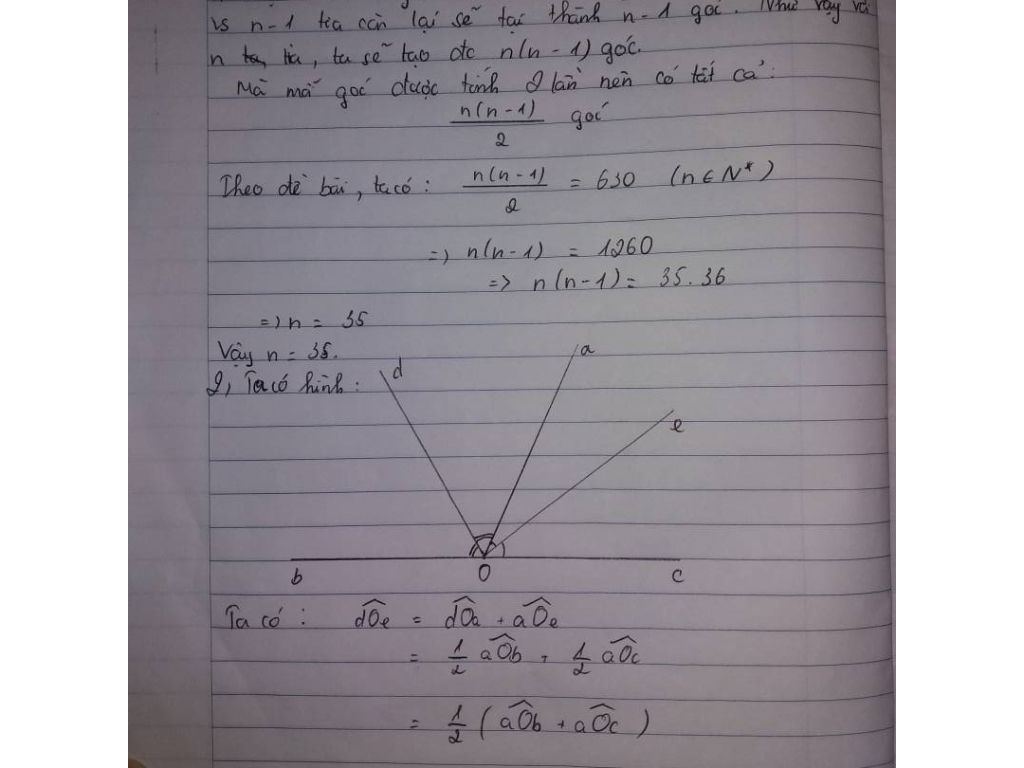 vs n-1 tia còn lại sẽ tại thành n-1 góc. Như vậy với
n tia, ta sẽ tạo đc n(n-1) góc.
Mà mỗ góc được tính 2 lần nên có tất cả:
n(n-1)/2 góc
Theo đề bài, ta có: n(n-1)/2 = 630 (n ∈ N*)
=> n(n-1) = 1260
=> n(n-1) = 35.36
=> n = 35
Vậy n = 35.
2, Ta có hình:
d
a
e
b
O
c
Ta có: dOe = dOa + aOe
= 1/2 aOb + 1/2 aOc
= 1/2 (aOb + aOc)